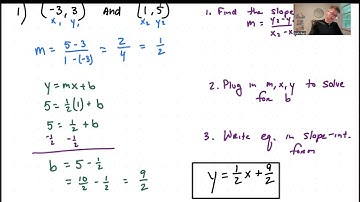 1) (-3, 3) And (1, 5)
x₁ y₁ x₂ y₂
m = 5-3 / 1-(-3) = 2/4 = 1/2
y = mx + b
5 = 1/2(1) + b
5 = 1/2 + b
-1/2 -1/2
b = 5 - 1/2
= 10/2 - 1/2 = 9/2
1. Find the slope
m = y₂-y / x₂-x
2. Plug in m, x, y to solve
for b
3. Write eq. in slope-int.
form
y = 1/2 x + 9/2